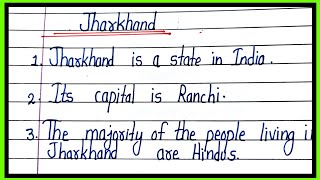 Jharkhand
1. Jharkhand is a state in India.
2. Its capital is Ranchi.
3. The majority of the people living i
Jharkhand are Hindus.